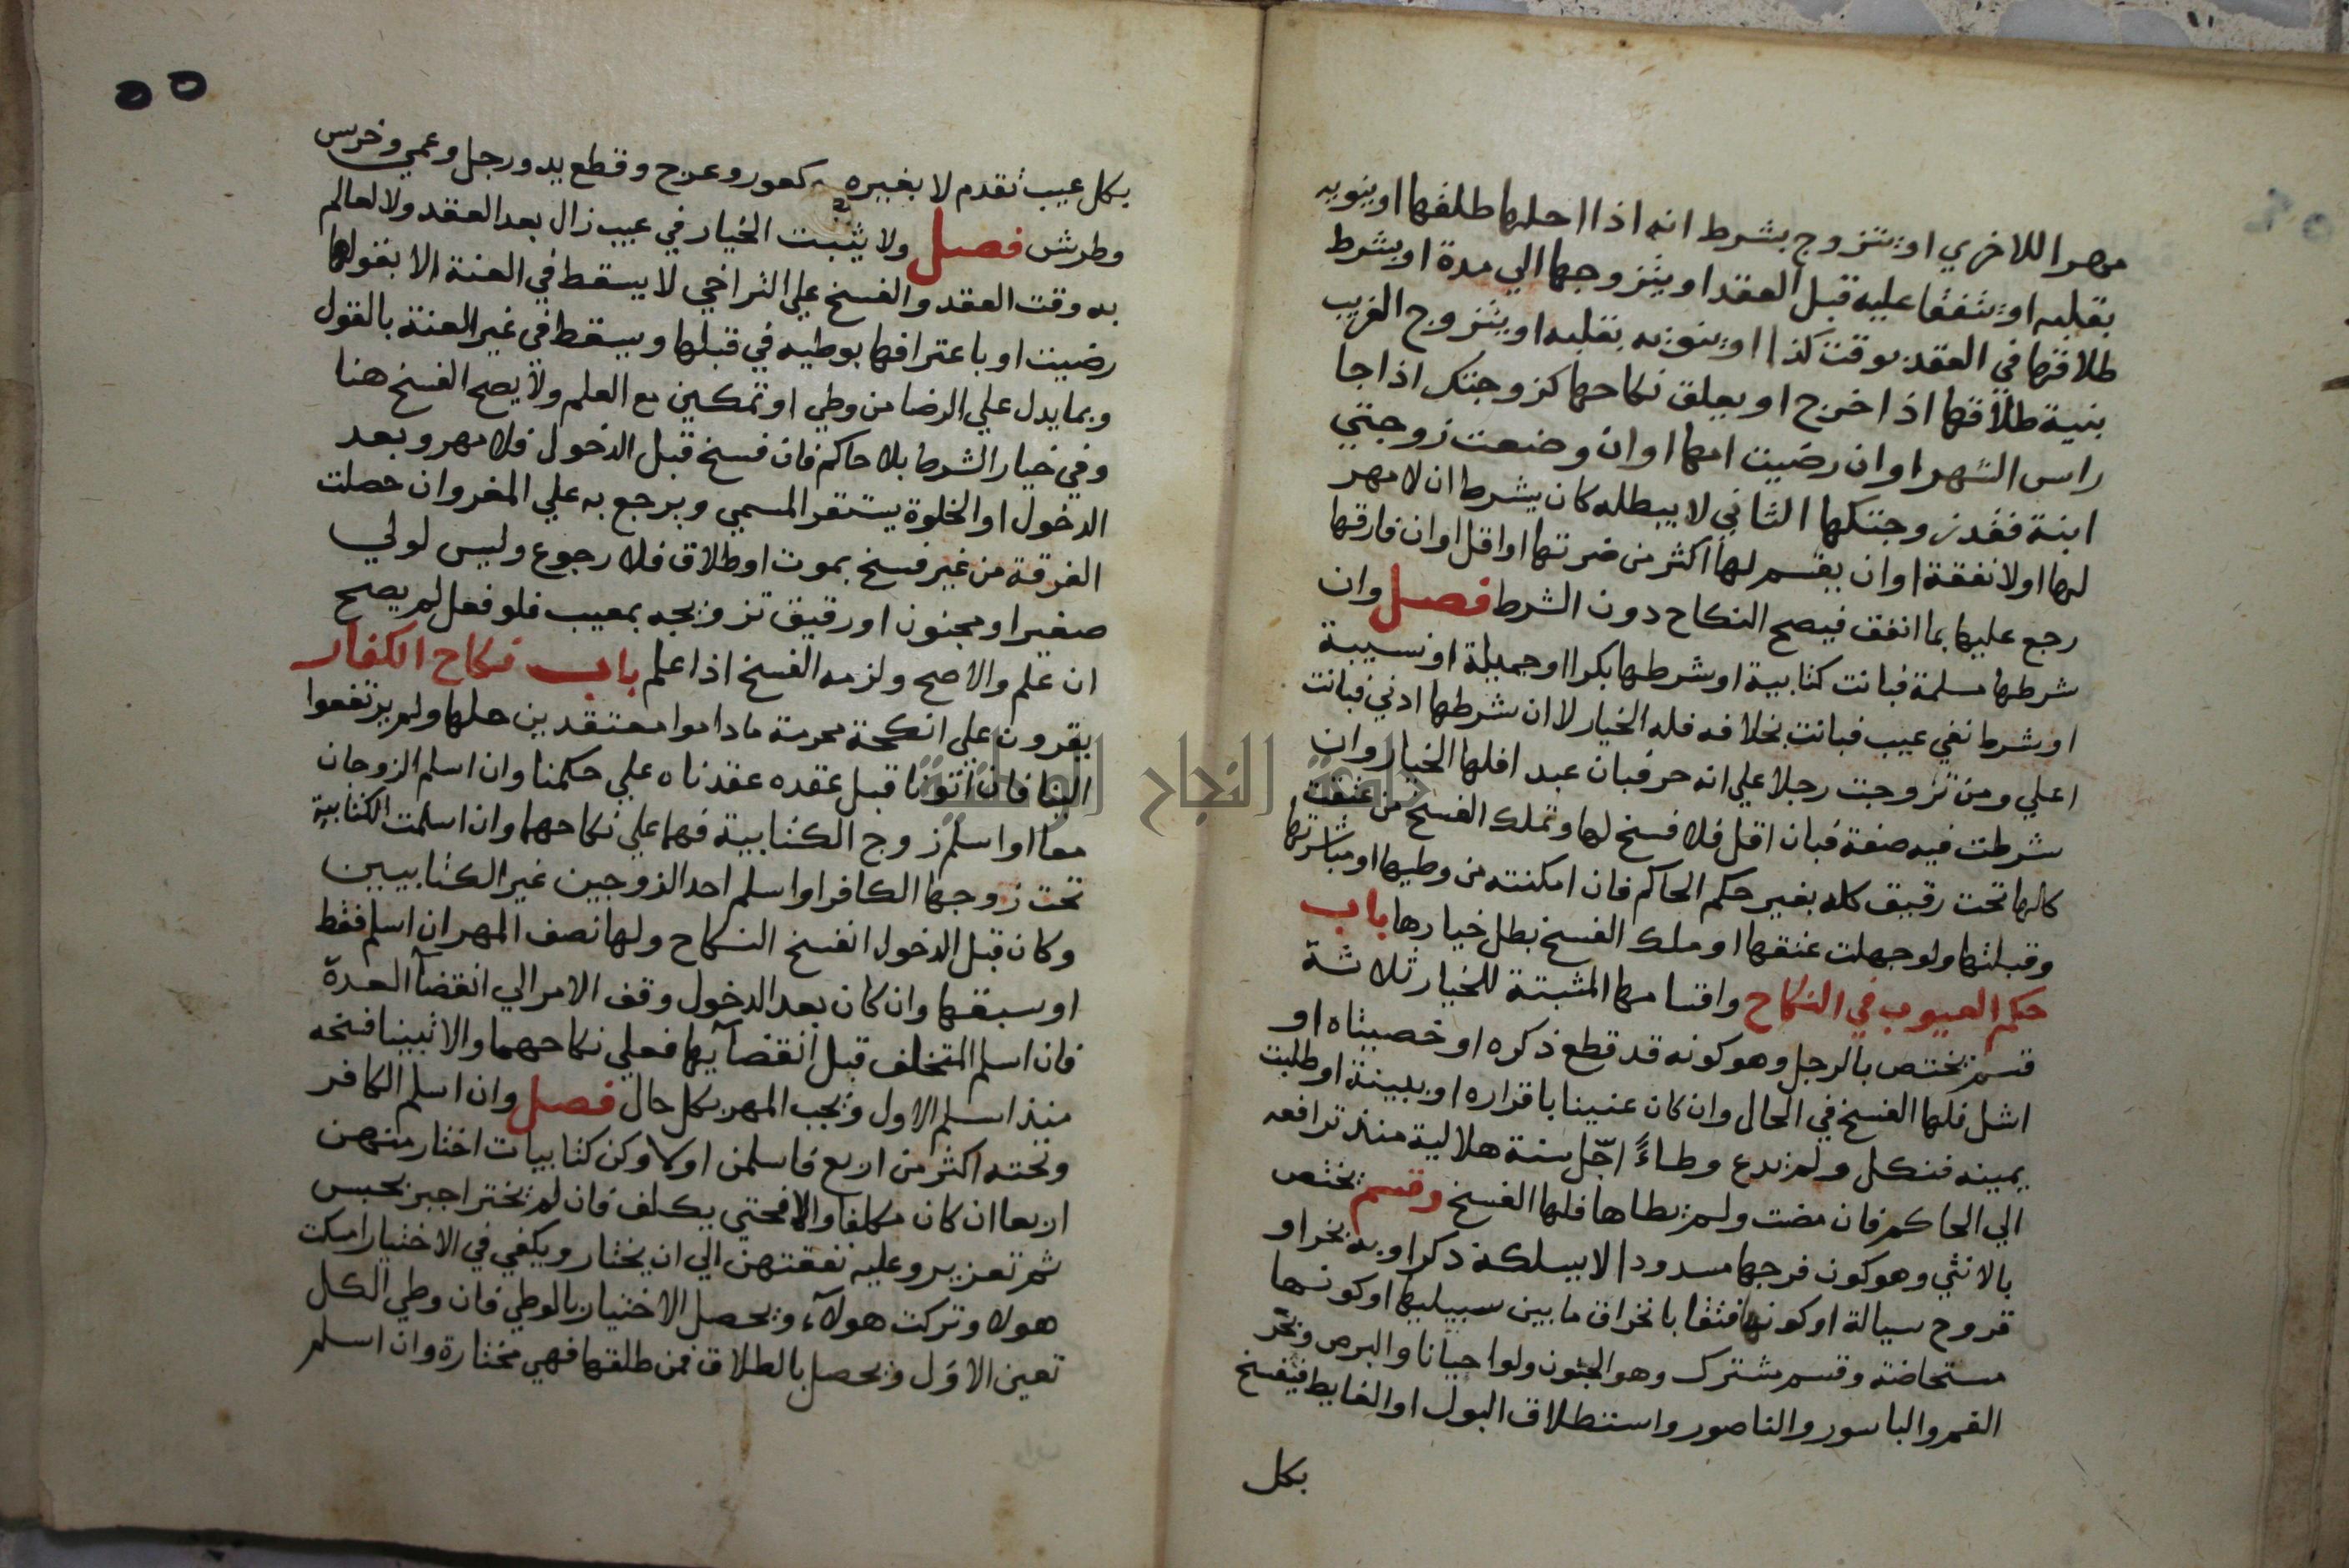 مهرا للاخري او يتزوج بشرط انه اذا احلها طلقها او ينويه
بقلبه او يتفقا عليه قبل العقد او يتزوجها الي مدة او بشرط
طلاقها في العقد بوقت كذا او ينويه بقلبه او يتزوج الغريب
بنية طلاقها اذا خرج او يعلق نكاحها كزوجتك اذا جا
راس الشهر او ان رضيت امها او ان وضعت زوجتي
ابنة فقد زوجتكها الثاني لا يبطله كان يشرط ان لا مهر
لها او لا نفقة او ان يقسم لها اكثر من ضرتها او اقل او ان فارقها
رجع عليها بما انفق فيصح النكاح دون الشرط فصل وان
شرطها مسلمة فبانت كتابية او شرطها بكرا او جميلة او نسيبة
او شرط نفي عيب فبانت بخلافه فله الخيار لا ان شرطها ادني فبانت
اعلي ومن تزوجت رجلا علي انه حر فبان عبدا فلها الخيار وان
شرطت فيه صفة فبان اقل فلا فسخ لها وتملك الفسخ من عتقت
كالها تحت رقيق كله بغير حكم الحاكم فان امكنته من وطيها او مباشرتها
وقبلتها ولو جهلت عتقها او ملك الفسخ بطل خيارها باب
حكم العيوب في النكاح واقسامها المثبتة للخيار ثلاثة
قسم يختص بالرجل وهو كونه قد قطع ذكره او خصيتاه او
اشل فلها الفسخ في الحال وان كان عنينا باقراره او ببينة او طلبت
يمينه فنكل ولم يدع وطاءً اجّل سنة هلالية منذ ترافعه
الي الحاكم فان مضت ولم يطاها فلها الفسخ وقسم يختص
بالانثي وهو كون فرجها مسدودا لا يسلكه ذكر او به بخر او
قروح سيالة او كونها فتقا بانخراق ما بين سبيليها او كونها
مستحاضة وقسم مشترك وهو الجنون ولو احيانا والبرص وبخر
الفم والباسور والناصور واستطلاق البول او الغايط فيفسخ
بكل
٥٥
بكل عيب تقدم لا بغيره كعور وعرج وقطع يد ورجل وعمي وخرس
وطرش فصل ولا يثبت الخيار في عيب زال بعد العقد ولا لعالم
به وقت العقد والفسخ علي التراخي لا يسقط في العنة الا بقولها
رضيت او باعترافها بوطيه في قبلها ويسقط في غير العنة بالقول
وبما يدل علي الرضا من وطي او تمكين مع العلم ولا يصح الفسخ هنا
وفي خيار الشرط بلا حاكم فان فسخ قبل الدخول فلا مهر وبعد
الدخول او الخلوة يستقر المسمي ويرجع به علي المغر وان حصلت
الفرقة من غير فسخ بموت او طلاق فلا رجوع وليس لولي
صغير او مجنون او رقيق تزويجه بمعيب فلو فعل لم يصح
ان علم والا صح ولزمه الفسخ اذا علم باب نكاح الكفار
يقرون علي انكحة محرمة ما داموا معتقدين حلها ولم يرتفعوا
الينا فان اتونا قبل عقده عقدناه علي حكمنا وان اسلم الزوجان
معا او اسلم زوج الكتابية فهما علي نكاحهما وان اسلمت الكتابية
تحت زوجها الكافر او اسلم احد الزوجين غير الكتابيين
وكان قبل الدخول انفسخ النكاح ولها نصف المهر ان اسلم فقط
او سبقها وان كان بعد الدخول وقف الامر الي انقضآ العدة
فان اسلم المتخلف قبل انقضآيها فعلي نكاحهما والا تبينا فسخه
منذ اسلم الاول ويجب المهر بكل حال فصل وان اسلم الكافر
وتحته اكثر من اربع فاسلمن اولا وكن كتابيات اختار منهن
اربعا ان كان مكلفا والا فحتي يكلف فان لم يختر اجبر بحبس
ثم تعزير وعليه نفقتهن الي ان يختار ويكفي في الاختيار امسكت
هولا وتركت هولآء ويحصل الاختيار بالوطي فان وطي الكل
تعين الاوَل ويحصل بالطلاق فمن طلقها فهي مختارة وان اسلم
جامعة النجاح الوطنية